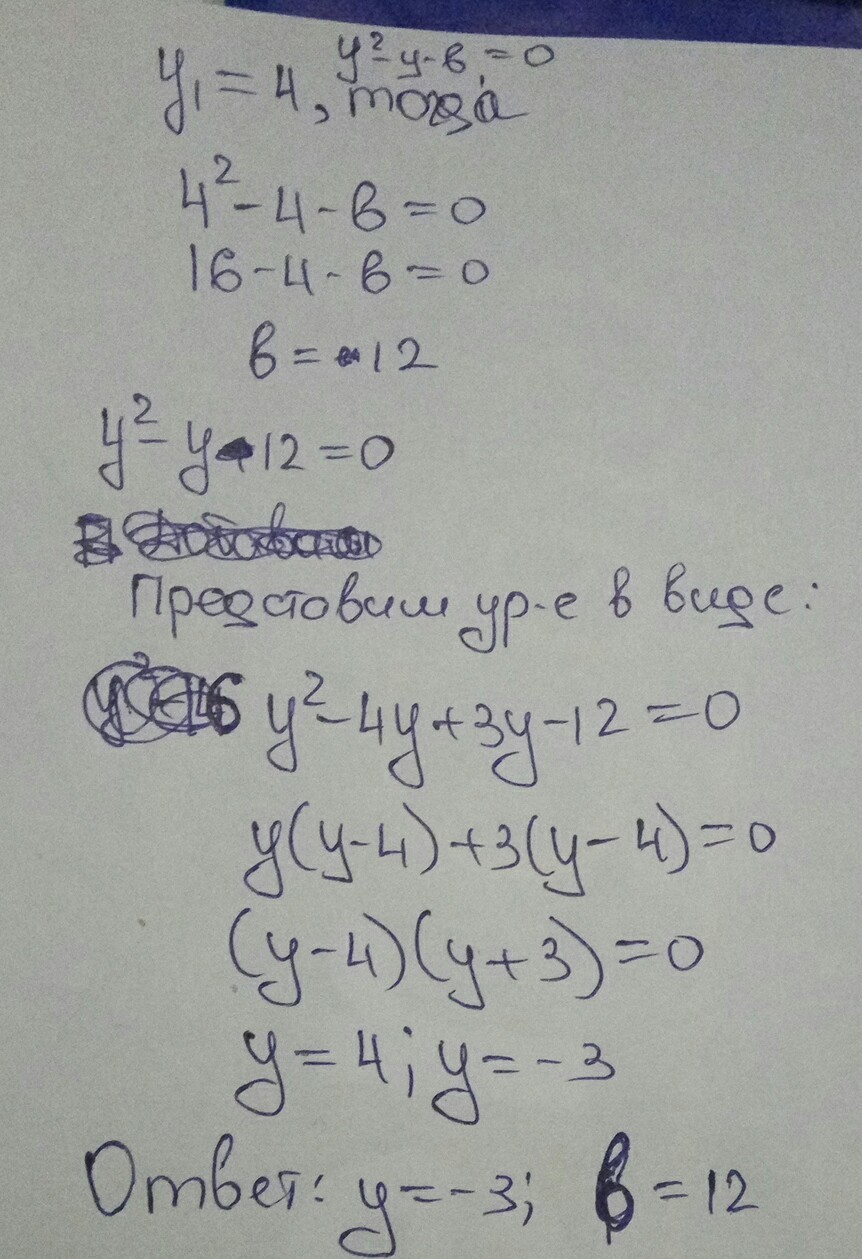 y² - y - в = 0
y₁ = 4, тогда
4² - 4 - в = 0
16 - 4 - в = 0
в = 12
y² - y - 12 = 0
Предстовим ур-е в виде:
y² - 4y + 3y - 12 = 0
y(y - 4) + 3(y - 4) = 0
(y - 4)(y + 3) = 0
y = 4; y = -3
Ответ: y = -3; в = 12